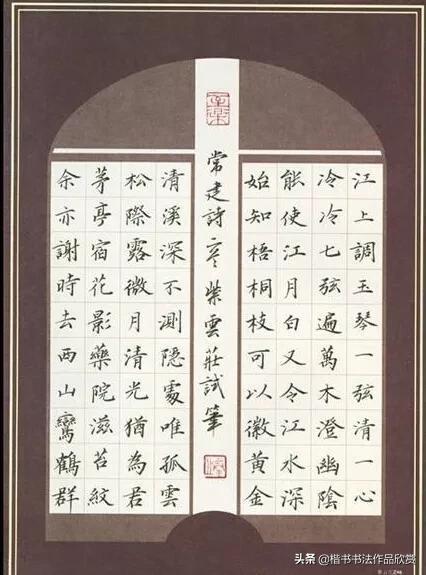 江上調玉琴一弦清一心
泠泠七弦遍萬木澄幽陰
能使江月白又令江水深
始知梧桐枝可以徽黃金
常建詩二章紫雲莊試筆
清溪深不測隱處唯孤雲
松際露微月清光猶為君
茅亭宿花影藥院滋苔紋
余亦謝時去西山鸞鶴群
头条@楷书书法作品欣赏